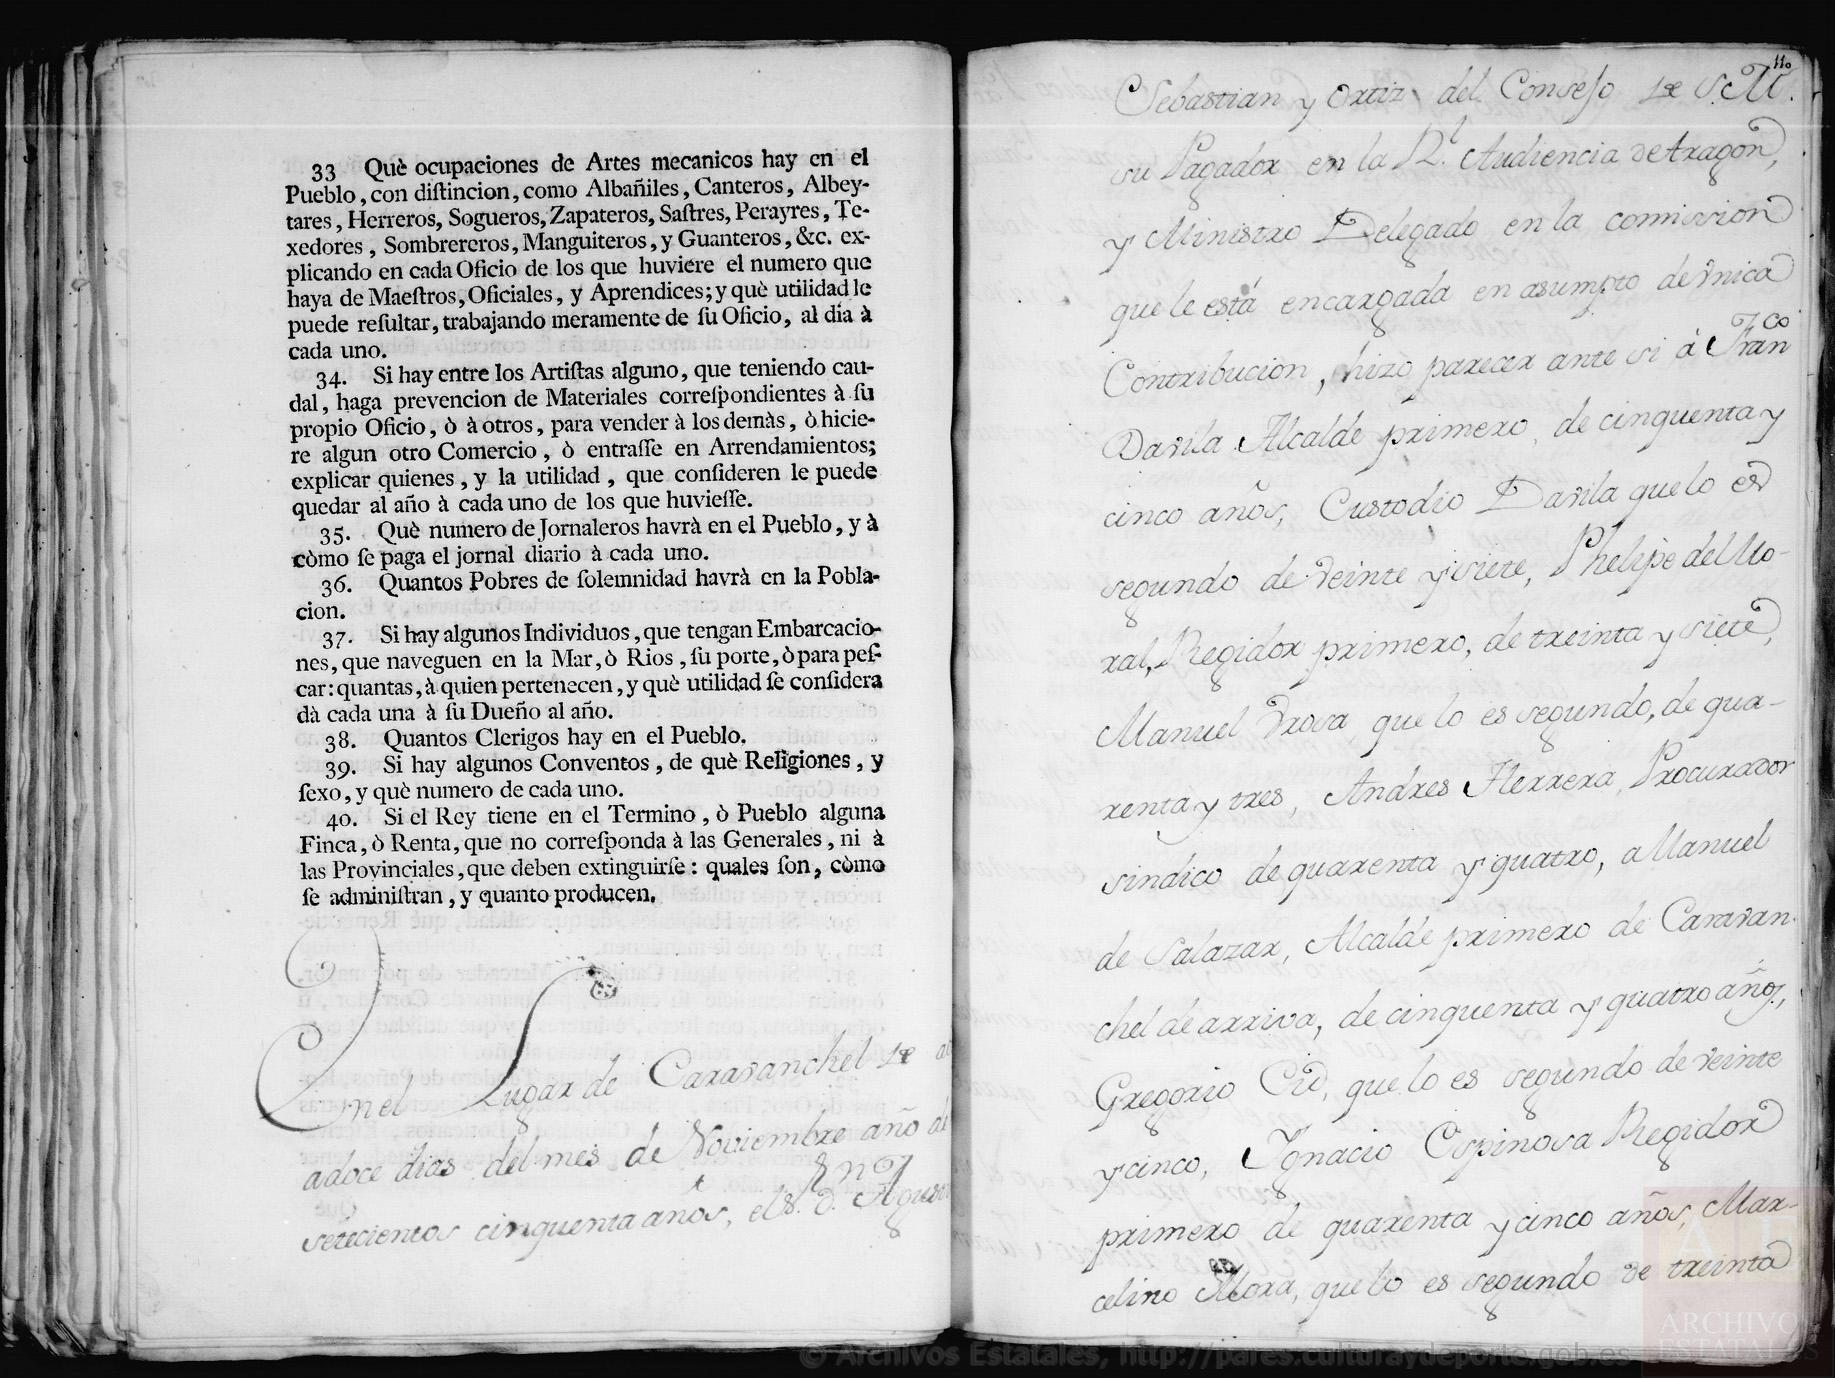 33 Què ocupaciones de Artes mecanicos hay en el
Pueblo, con diſtincion, como Albañiles, Canteros, Albey-
tares, Herreros, Sogueros, Zapateros, Saſtres, Perayres, Te-
xedores, Sombrereros, Manguiteros, y Guanteros, &c. ex-
plicando en cada Oficio de los que huviere el numero que
haya de Maeſtros, Oficiales, y Aprendices; y què utilidad le
puede reſultar, trabajando meramente de ſu Oficio, al dia à
cada uno.
34. Si hay entre los Artiſtas alguno, que teniendo cau-
dal, haga prevencion de Materiales correſpondientes à ſu
propio Oficio, ò à otros, para vender à los demàs, ò hicie-
re algun otro Comercio, ò entraſſe en Arrendamientos;
explicar quienes, y la utilidad, que conſideren le puede
quedar al año à cada uno de los que huvieſſe.
35. Què numero de Jornaleros havrà en el Pueblo, y à
còmo ſe paga el jornal diario à cada uno.
36. Quantos Pobres de ſolemnidad havrà en la Pobla-
cion.
37. Si hay algunos Individuos, que tengan Embarcacio-
nes, que naveguen en la Mar, ò Rios, ſu porte, ò para peſ-
car: quantas, à quien pertenecen, y què utilidad ſe conſidera
dà cada una à ſu Dueño al año.
38. Quantos Clerigos hay en el Pueblo.
39. Si hay algunos Conventos, de què Religiones, y
ſexo, y què numero de cada uno.
40. Si el Rey tiene en el Termino, ò Pueblo alguna
Finca, ò Renta, que no correſponda à las Generales, ni à
las Provinciales, que deben extinguirſe: quales ſon, còmo
ſe adminiſtran, y quanto producen.
En el Lugar de Caravanchel de
a doce dias del mes de Noviembre año de
setecientos cinquenta anos, el S.r d.n Agustin
110
Sebastian y Ortiz del Consejo de S.M.
su Pagador en la R.l Audiencia de Aragon,
y Ministro Delegado en la comission
que le está encargada en asumpto de vnica
Contribucion, hizo parecer ante si á Fran.co
Davila Alcalde primero, de cinquenta y
cinco años, Custodio Davila que lo es
segundo de veinte y siete, Phelipe del Mo-
ral, Regidor primero, de treinta y siete,
Manuel Vrosa que lo es segundo, de qua-
renta y tres, Andres Herrera, Procurador
sindico de quarenta y quatro, a Manuel
de Salazar, Alcalde primero de Caravan-
chel de arriva, de cinquenta y quatro años,
Gregorio Cid, que lo es segundo de veinte
y cinco, Ygnacio Espinosa Regidor
primero de quarenta y cinco años, Mar-
celino Mora, que lo es segundo de treinta
ARCHIVO
ESTATALES
© Archivos Estatales, http://pares.culturaydeporte.gob.es